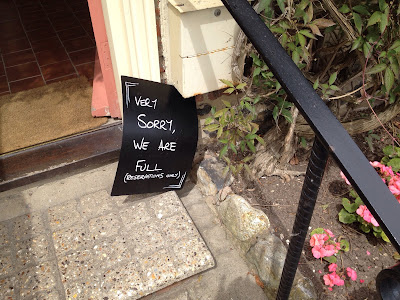 VERY
SORRY,
WE ARE
FULL
(RESERVATIONS ONLY)